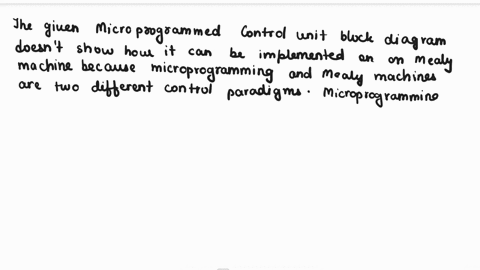 The given Microprogrammed Control unit block diagram
doesn't show how it can be implemented an on Mealy
machine because microprogramming and Mealy machines
are two different control paradigms. Microprogramming